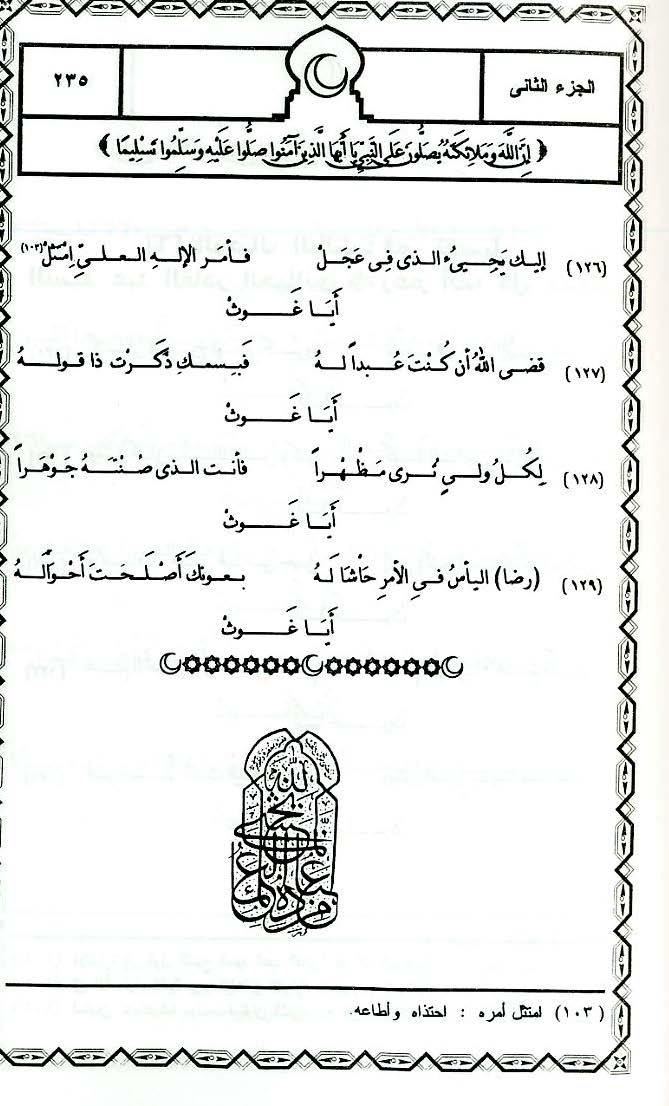 الجزء الثانى
٢٣٥
﴿ إِنَّ اللَّهَ وَمَلَائِكَتَهُ يُصَلُّونَ عَلَى النَّبِيِّ يَا أَيُّهَا الَّذِينَ آمَنُوا صَلُّوا عَلَيْهِ وَسَلِّمُوا تَسْلِيمًا ﴾
(١٢٦) إليك يَجِيىءُ الذى فِى عَجَل فأمْر الإلهِ العلىِّ امتثلْ (١٠٣)
أَيَا غَوثْ
(١٢٧) قضى اللهُ أن كُنْتَ عُبداً لهُ فَبِسمكِ ذَكَرْت ذا قولهُ
أَيَا غَوثْ
(١٢٨) لِكُلُ ولىٍ تُرى مَظْهْراً فأنت الذى صنْتَهُ جَوْهَراً
أَيَا غَوثْ
(١٢٩) (رضا) اليأسُ فىِ الأمرِ حَاشَا لَهُ بعونكَ أَصْلَحَتَ أَحْوَالهُ
أَيَا غَوثْ
(١٠٣) امتثل أمره : احتذاه وأطاعه.